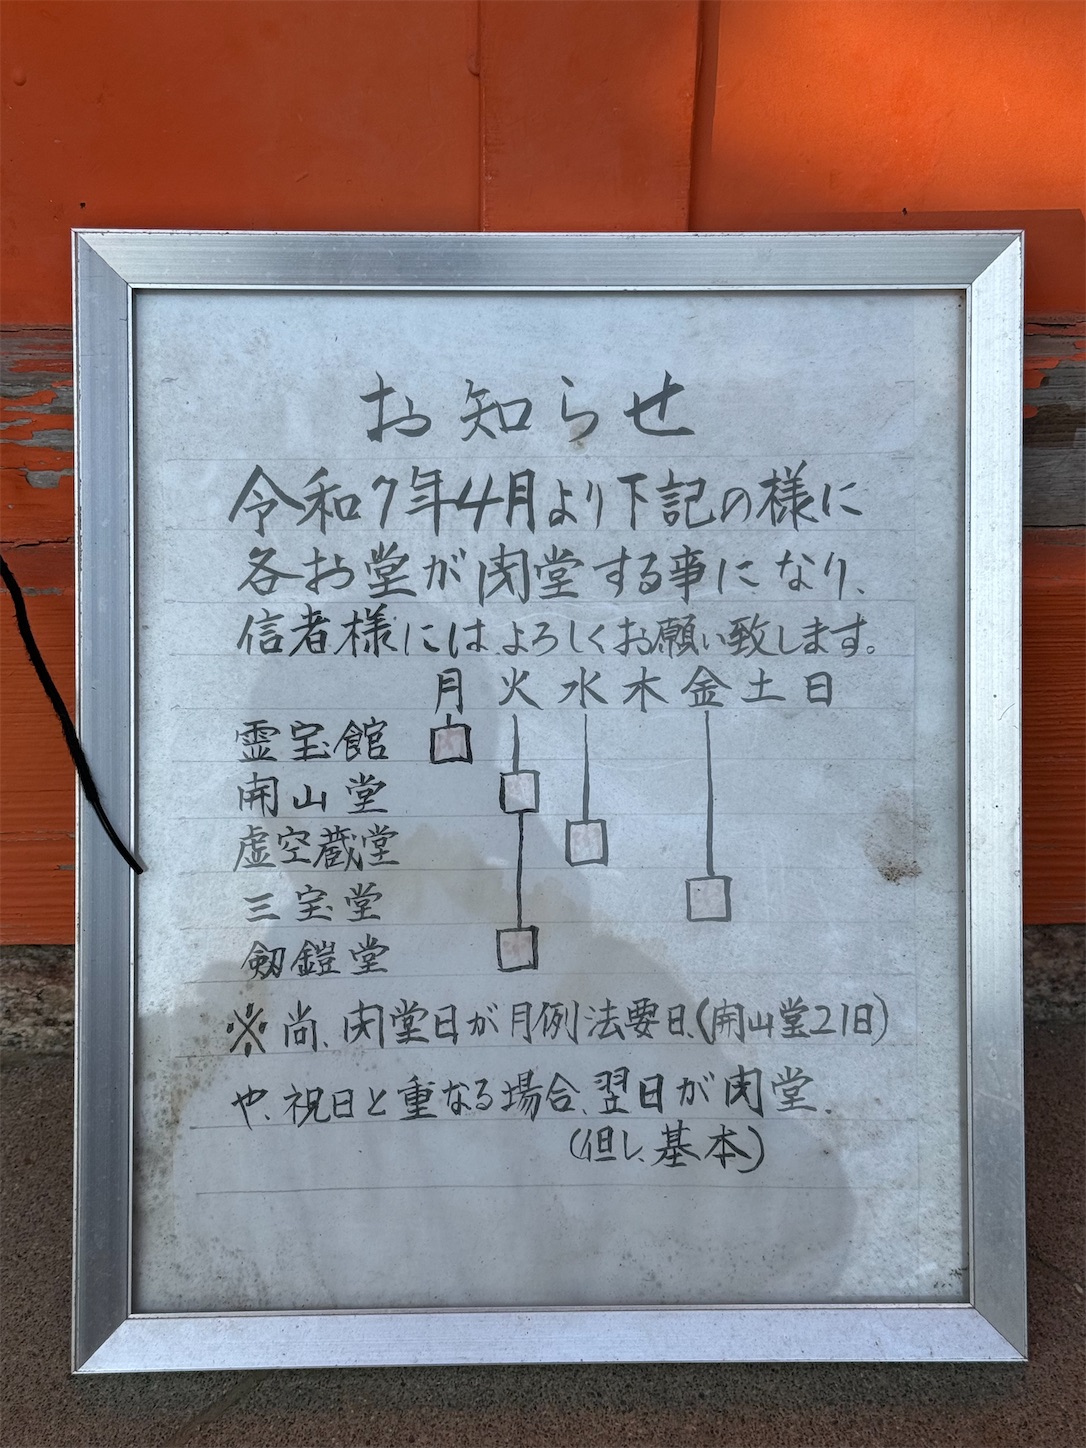 お知らせ
令和7年4月より下記の様に
各お堂が閉堂する事になり、
信者様にはよろしくお願い致します。
月 火 水 木 金 土 日
霊宝館
開山堂
虚空蔵堂
三宝堂
剱鎧堂
※尚、閉堂日が月例法要日、(開山堂21日)
や、祝日と重なる場合、翌日が閉堂、
(但し、基本)